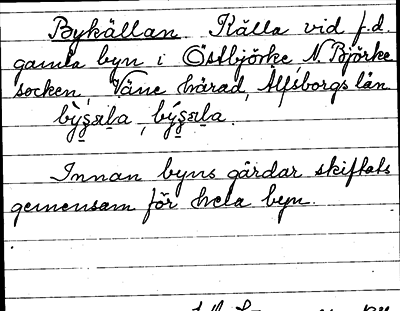 Bykällan. Källa vid f.d.
gamla byn i Östbjörke N. Björke
socken, Väne härad, Älfsborgs län.
Innan byns gårdar skiftats
gemensam för hela byn.